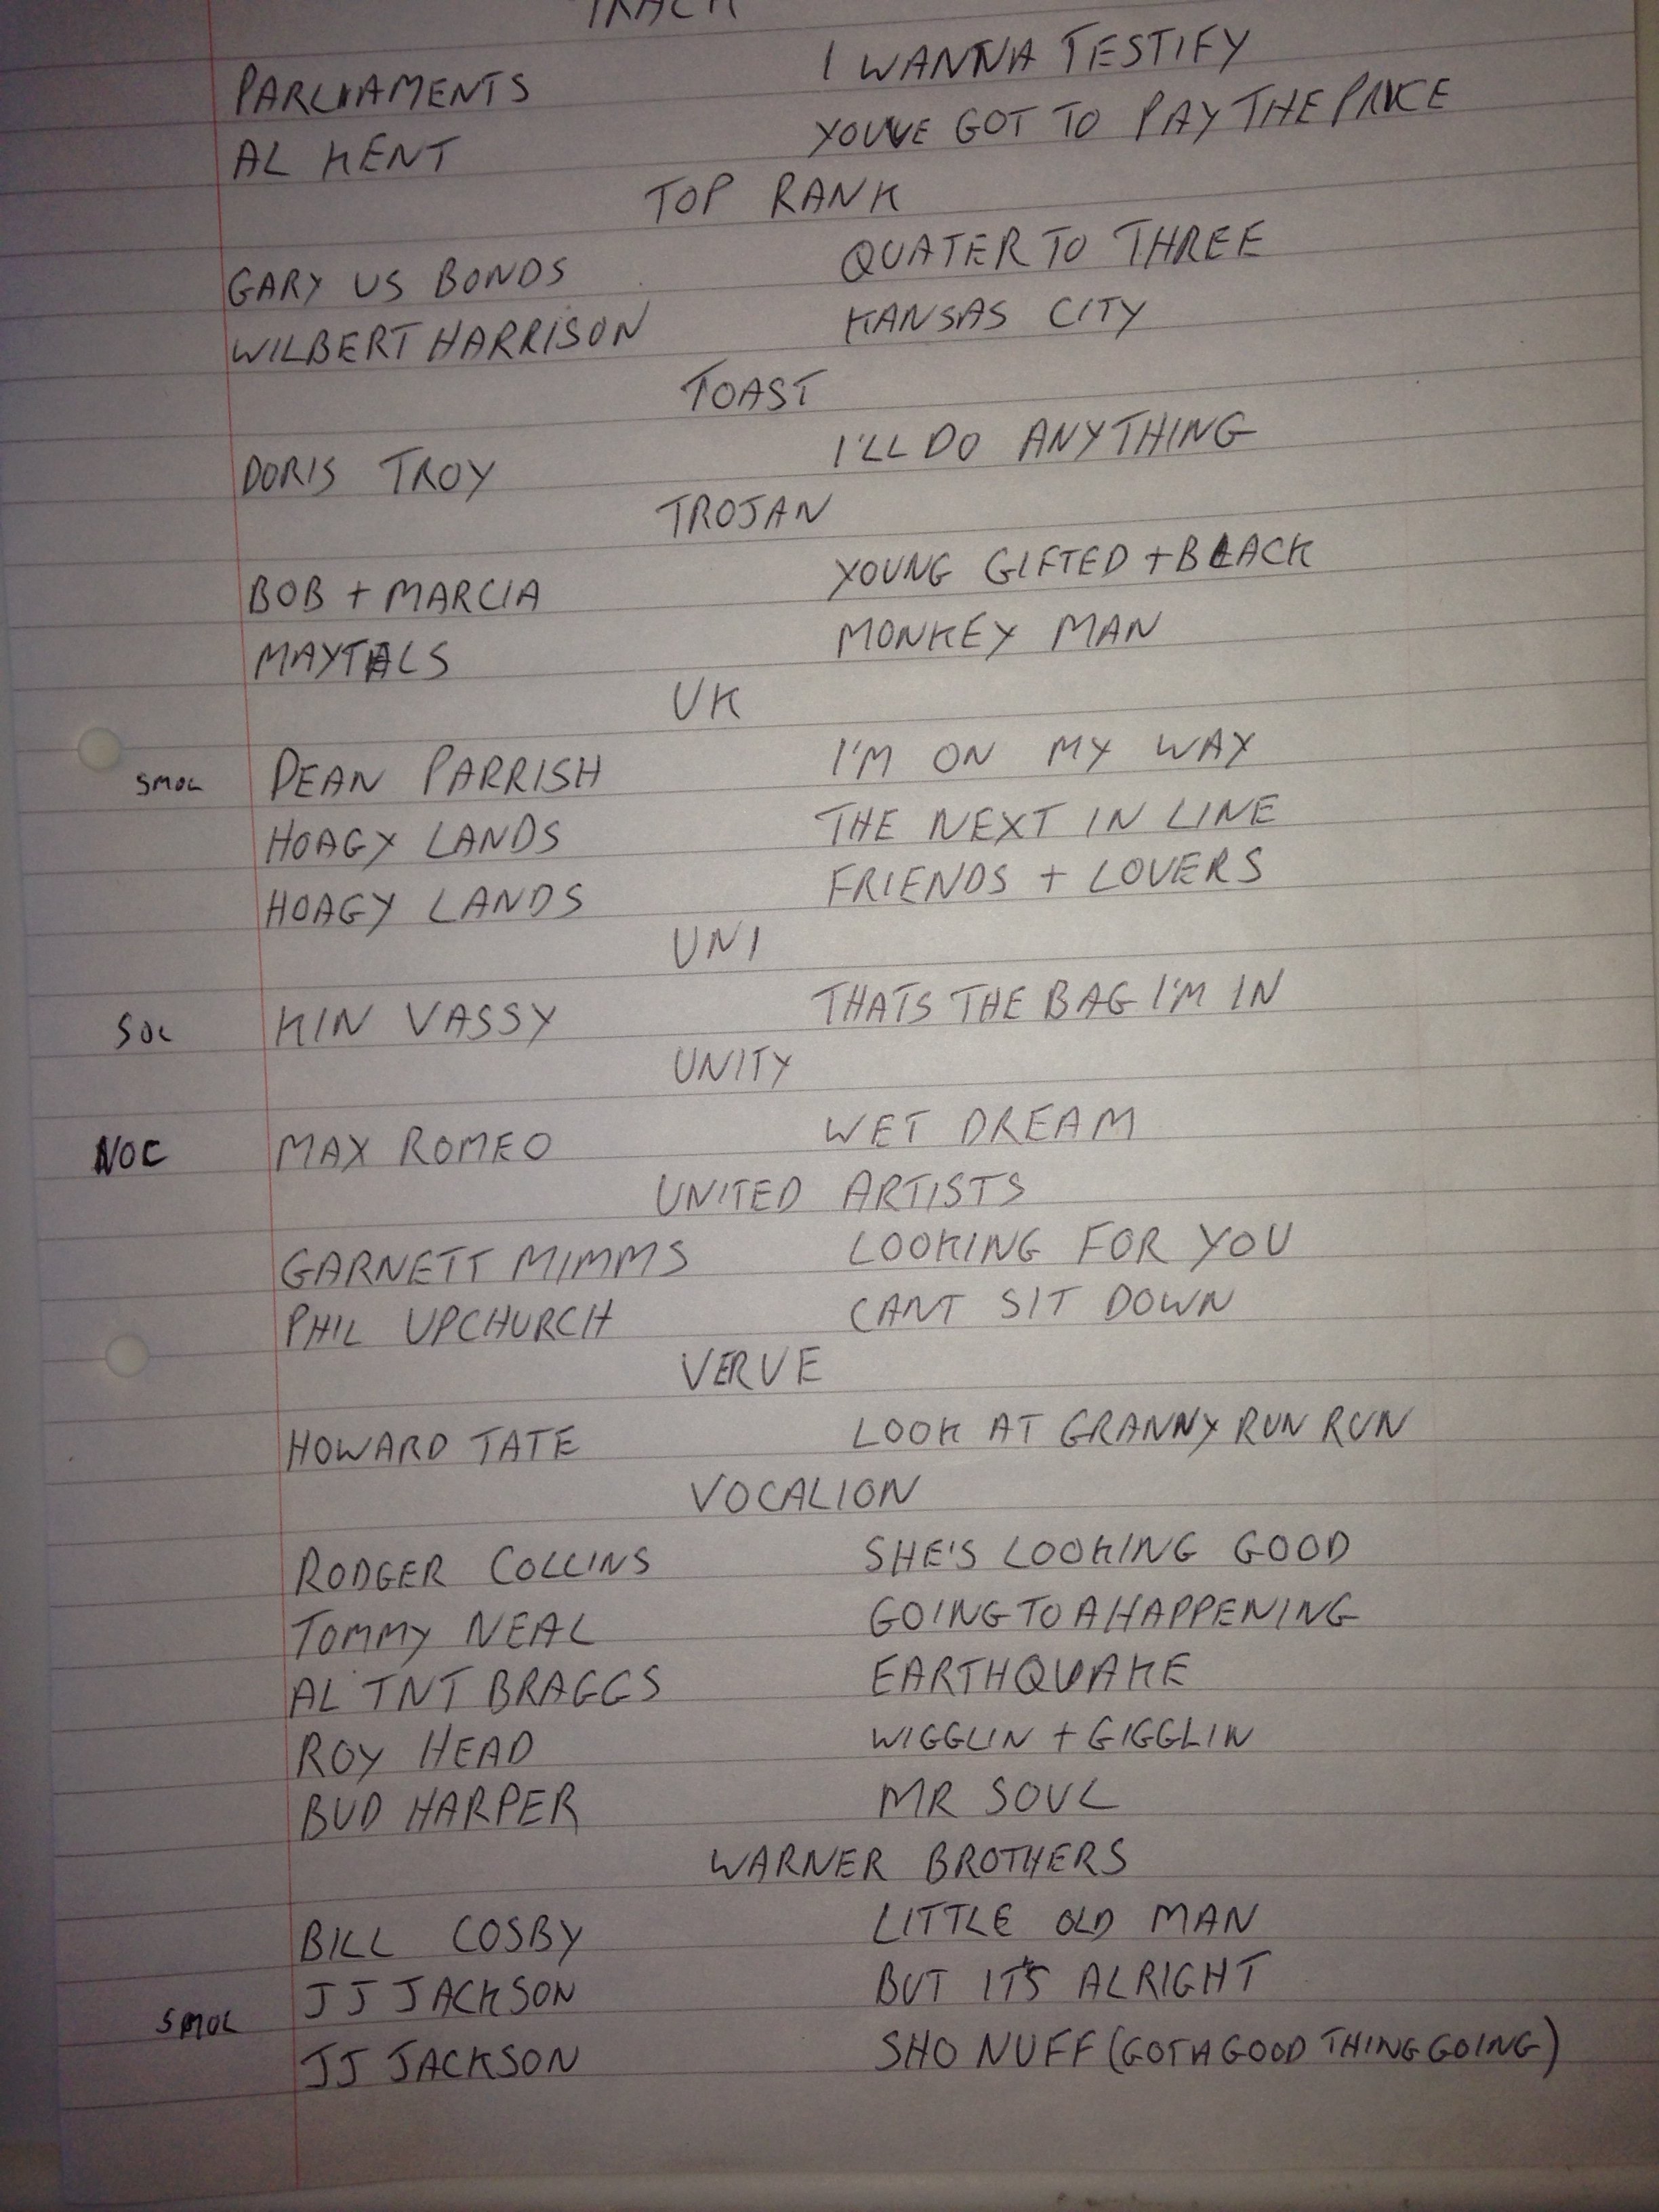 TRACK
PARLIAMENTS I WANNA TESTIFY
AL KENT YOUVE GOT TO PAY THE PRICE
TOP RANK
GARY US BONDS QUATER TO THREE
WILBERT HARRISON KANSAS CITY
TOAST
DORIS TROY I'LL DO ANYTHING
TROJAN
BOB + MARCIA YOUNG GIFTED + BLACK
MAYTALS MONKEY MAN
UK
SMOL DEAN PARRISH I'M ON MY WAY
HOAGY LANDS THE NEXT IN LINE
HOAGY LANDS FRIENDS + LOVERS
UNI
SOL KIN VASSY THATS THE BAG I'M IN
UNITY
NOC MAX ROMEO WET DREAM
UNITED ARTISTS
GARNETT MIMMS LOOKING FOR YOU
PHIL UPCHURCH CANT SIT DOWN
VERVE
HOWARD TATE LOOK AT GRANNY RUN RUN
VOCALION
RODGER COLLINS SHE'S LOOKING GOOD
TOMMY NEAL GOING TO A HAPPENING
AL TNT BRAGGS EARTHQUAKE
ROY HEAD WIGGLIN + GIGGLIN
BUD HARPER MR SOUL
WARNER BROTHERS
BILL COSBY LITTLE OLD MAN
JJ JACKSON BUT IT'S ALRIGHT
SMOL JJ JACKSON SHO NUFF (GOT A GOOD THING GOING)